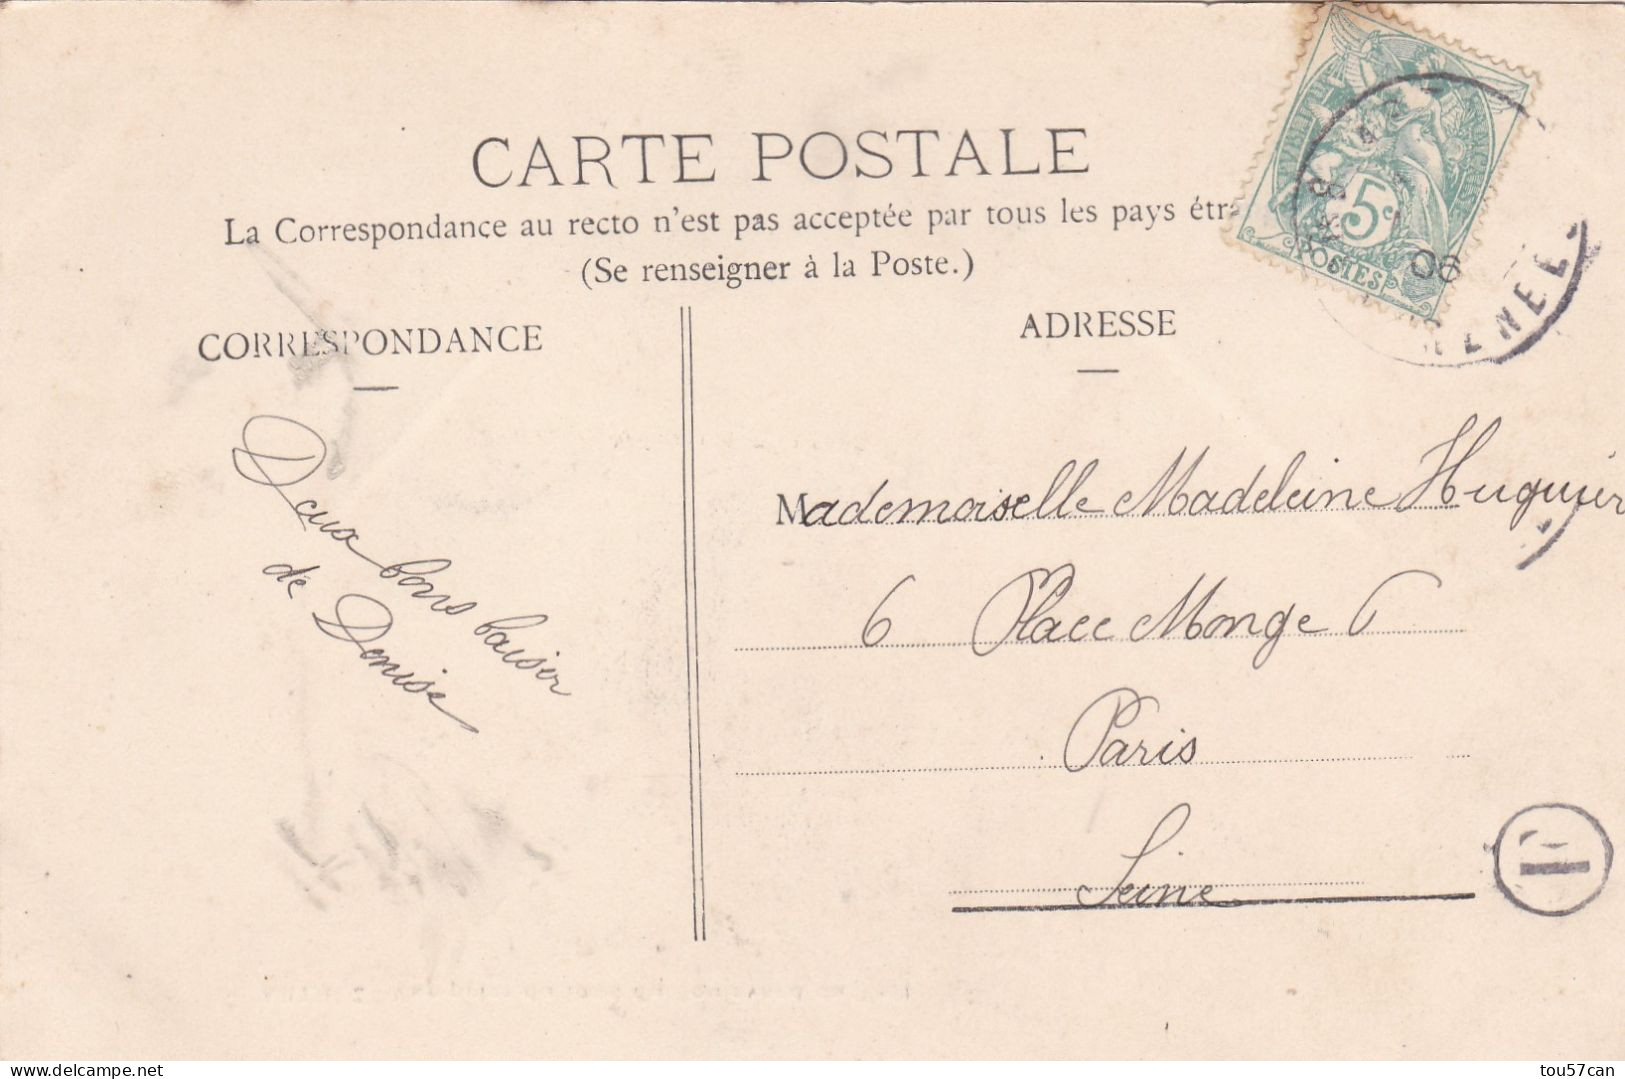 CARTE POSTALE
La Correspondance au recto n'est pas acceptée par tous les pays étra
(Se renseigner à la Poste.)
5c
POSTES
06
CORRESPONDANCE
ADRESSE
Deux bons baiser
de Denise
Mademoiselle Madeleine Huguier
6 Place Monge 6
Paris
Seine
tou57can